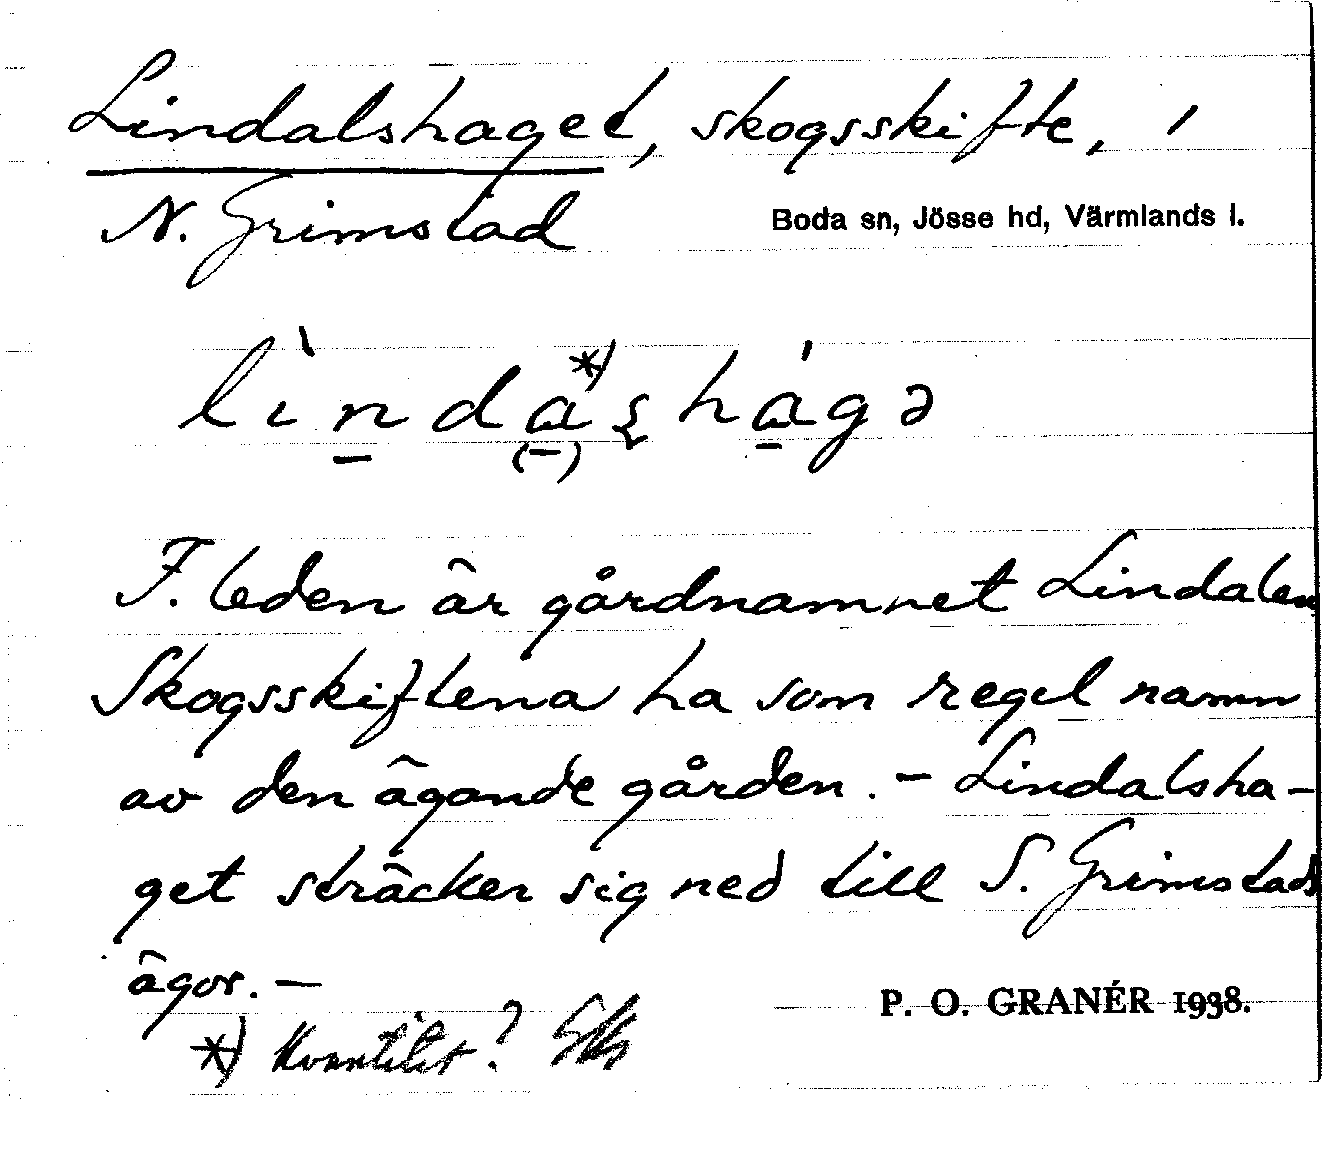 Lindalshaget, skogsskifte, i
N. Grimstad
Boda sn, Jösse hd, Värmlands l.
lìnda*)ʂhágə
F. leden är gårdnamnet Lindalen
Skogsskiftena ha som regel namn
av den ägande gården. - Lindalsha-
get sträcker sig ned till S. Grimstads
ägor. -
P. O. GRANÉR 1938.
*) Kvantitet?